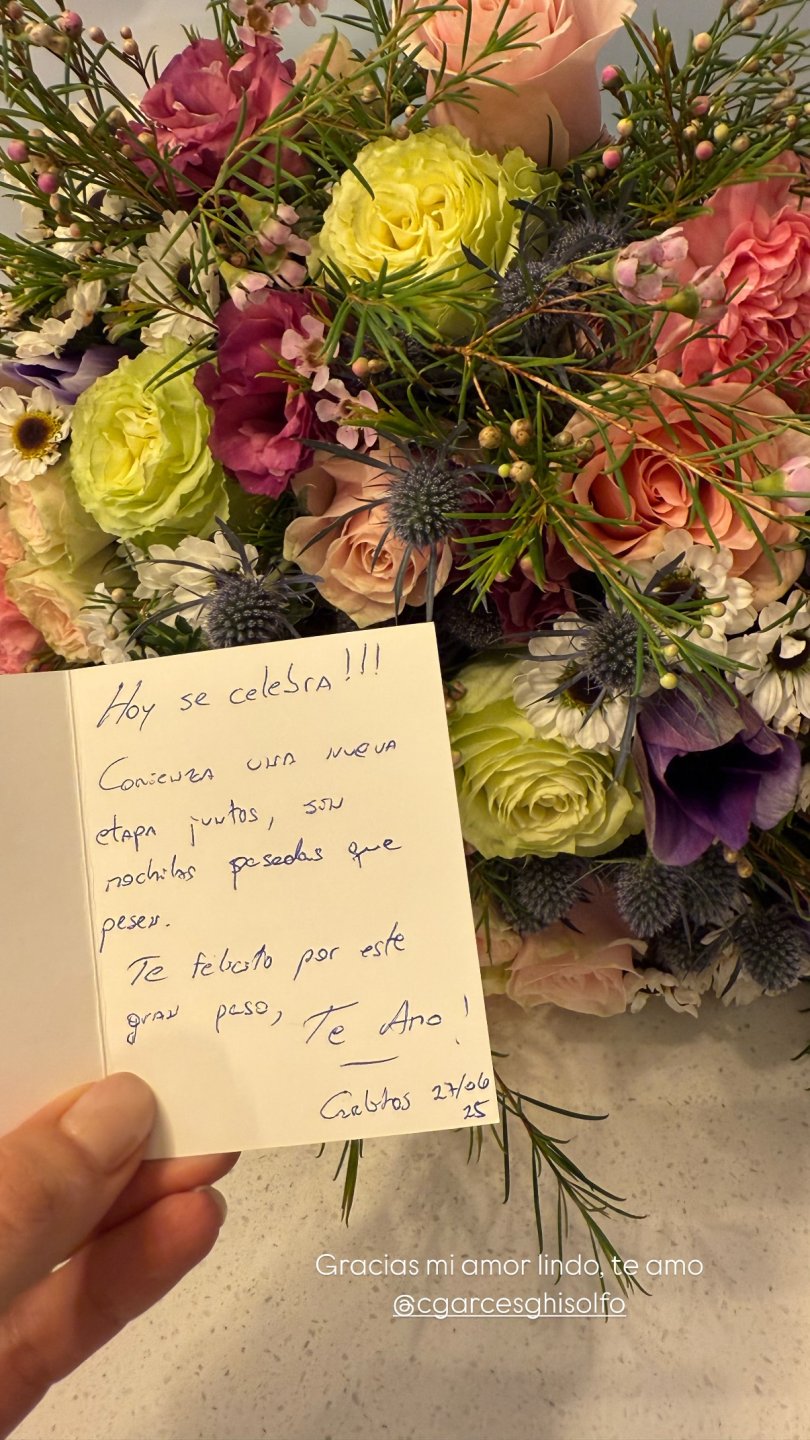 Hoy se celebra!!!
Comienza una nueva
etapa juntos, son
mochilas pesadas que
pesen.
Te felicito por este
gran paso, Te Amo!
Carlitos 27/06
25
Gracias mi amor lindo, te amo
@cgarcesghisolfo